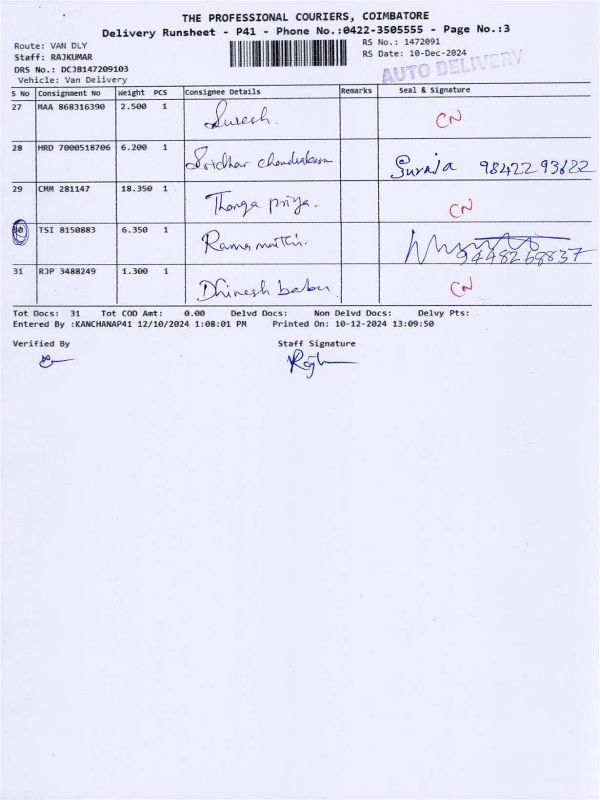 THE PROFESSIONAL COURIERS, COIMBATORE
Delivery Runsheet - P41 - Phone No.:0422-3505555 - Page No.:3
Route: VAN DLY
RS No.: 1472091
Staff: RAJKUMAR
RS Date: 10-Dec-2024
DRS No.: DCJB147209103
AUTO DELIVERY
Vehicle: Van Delivery
S No Consignment No Weight PCS Consignee Details Remarks Seal & Signature
27 MAA 868316390 2.500 1 Suresh. CN
28 HRD 7000518706 6.200 1 Sridhar 98422 93622
29 CMM 281147 18.350 1 Thanga priya. CN
30 TSI 8150883 6.350 1 9448268837
31 RJP 3488249 1.300 1 Dhinesh babu CN
Tot Docs: 31 Tot COD Amt: 0.00 Delvd Docs: Non Delvd Docs: Delvy Pts:
Entered By :KANCHANAP41 12/10/2024 1:08:01 PM Printed On: 10-12-2024 13:09:50
Verified By Staff Signature